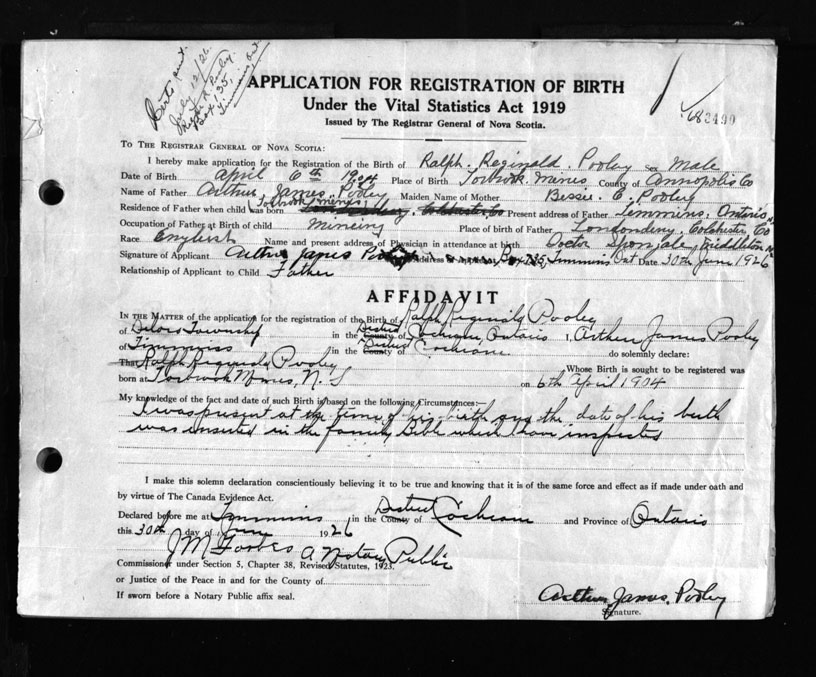 Birth cert.
July 12/26
Ralph R. Pooley
Box 735,
Timmins Ont.
APPLICATION FOR REGISTRATION OF BIRTH
Under the Vital Statistics Act 1919
Issued by The Registrar General of Nova Scotia.
682490
TO THE REGISTRAR GENERAL OF NOVA SCOTIA:
I hereby make application for the Registration of the Birth of Ralph. Reginald. Pooley Sex Male
Date of Birth April 6th 1904 Place of Birth Torbrook. Mines County of Annopolis Co
Name of Father Arthur James. Pooley Maiden Name of Mother Bessie. E. Pooley
Residence of Father when child was born Torbrook Mines Londonderry, Colchester Co Present address of Father Timmins. Ontario
Occupation of Father at Birth of child Mineing Place of birth of Father Londonderry. Colchester. Co
Race English Name and present address of Physician in attendance at birth Doctor Middleton
Signature of Applicant Arthur James Pooley Address of Applicant Box 735, Timmins Ont Date 30th June 1926
Relationship of Applicant to Child Father
AFFIDAVIT
IN THE MATTER of the application for the registration of the Birth of Ralph Reginald Pooley
of Township in the County District of Cochrane, Ontario I, Arthur James Pooley
of Timmins in the County District of Cochrane do solemnly declare:
That Ralph Reginald Pooley Whose Birth is sought to be registered was
born at Torbrook Mines, N. S on 6th April 1904
My knowledge of the fact and date of such Birth is based on the following Circumstances:—
I was present at the time of his birth and the date of his birth
was inserted in the family Bible which I have inspected
I make this solemn declaration conscientiously believing it to be true and knowing that it is of the same force and effect as if made under oath and
by virtue of The Canada Evidence Act.
Declared before me at Timmins in the County of District Cochrane and Province of Ontario
this 30th day of June 1926
J M Forbes A Notary Public
Commissioner under Section 5, Chapter 38, Revised Statutes, 1923.
or Justice of the Peace in and for the County of
If sworn before a Notary Public affix seal.
Arthur James. Pooley
Signature.